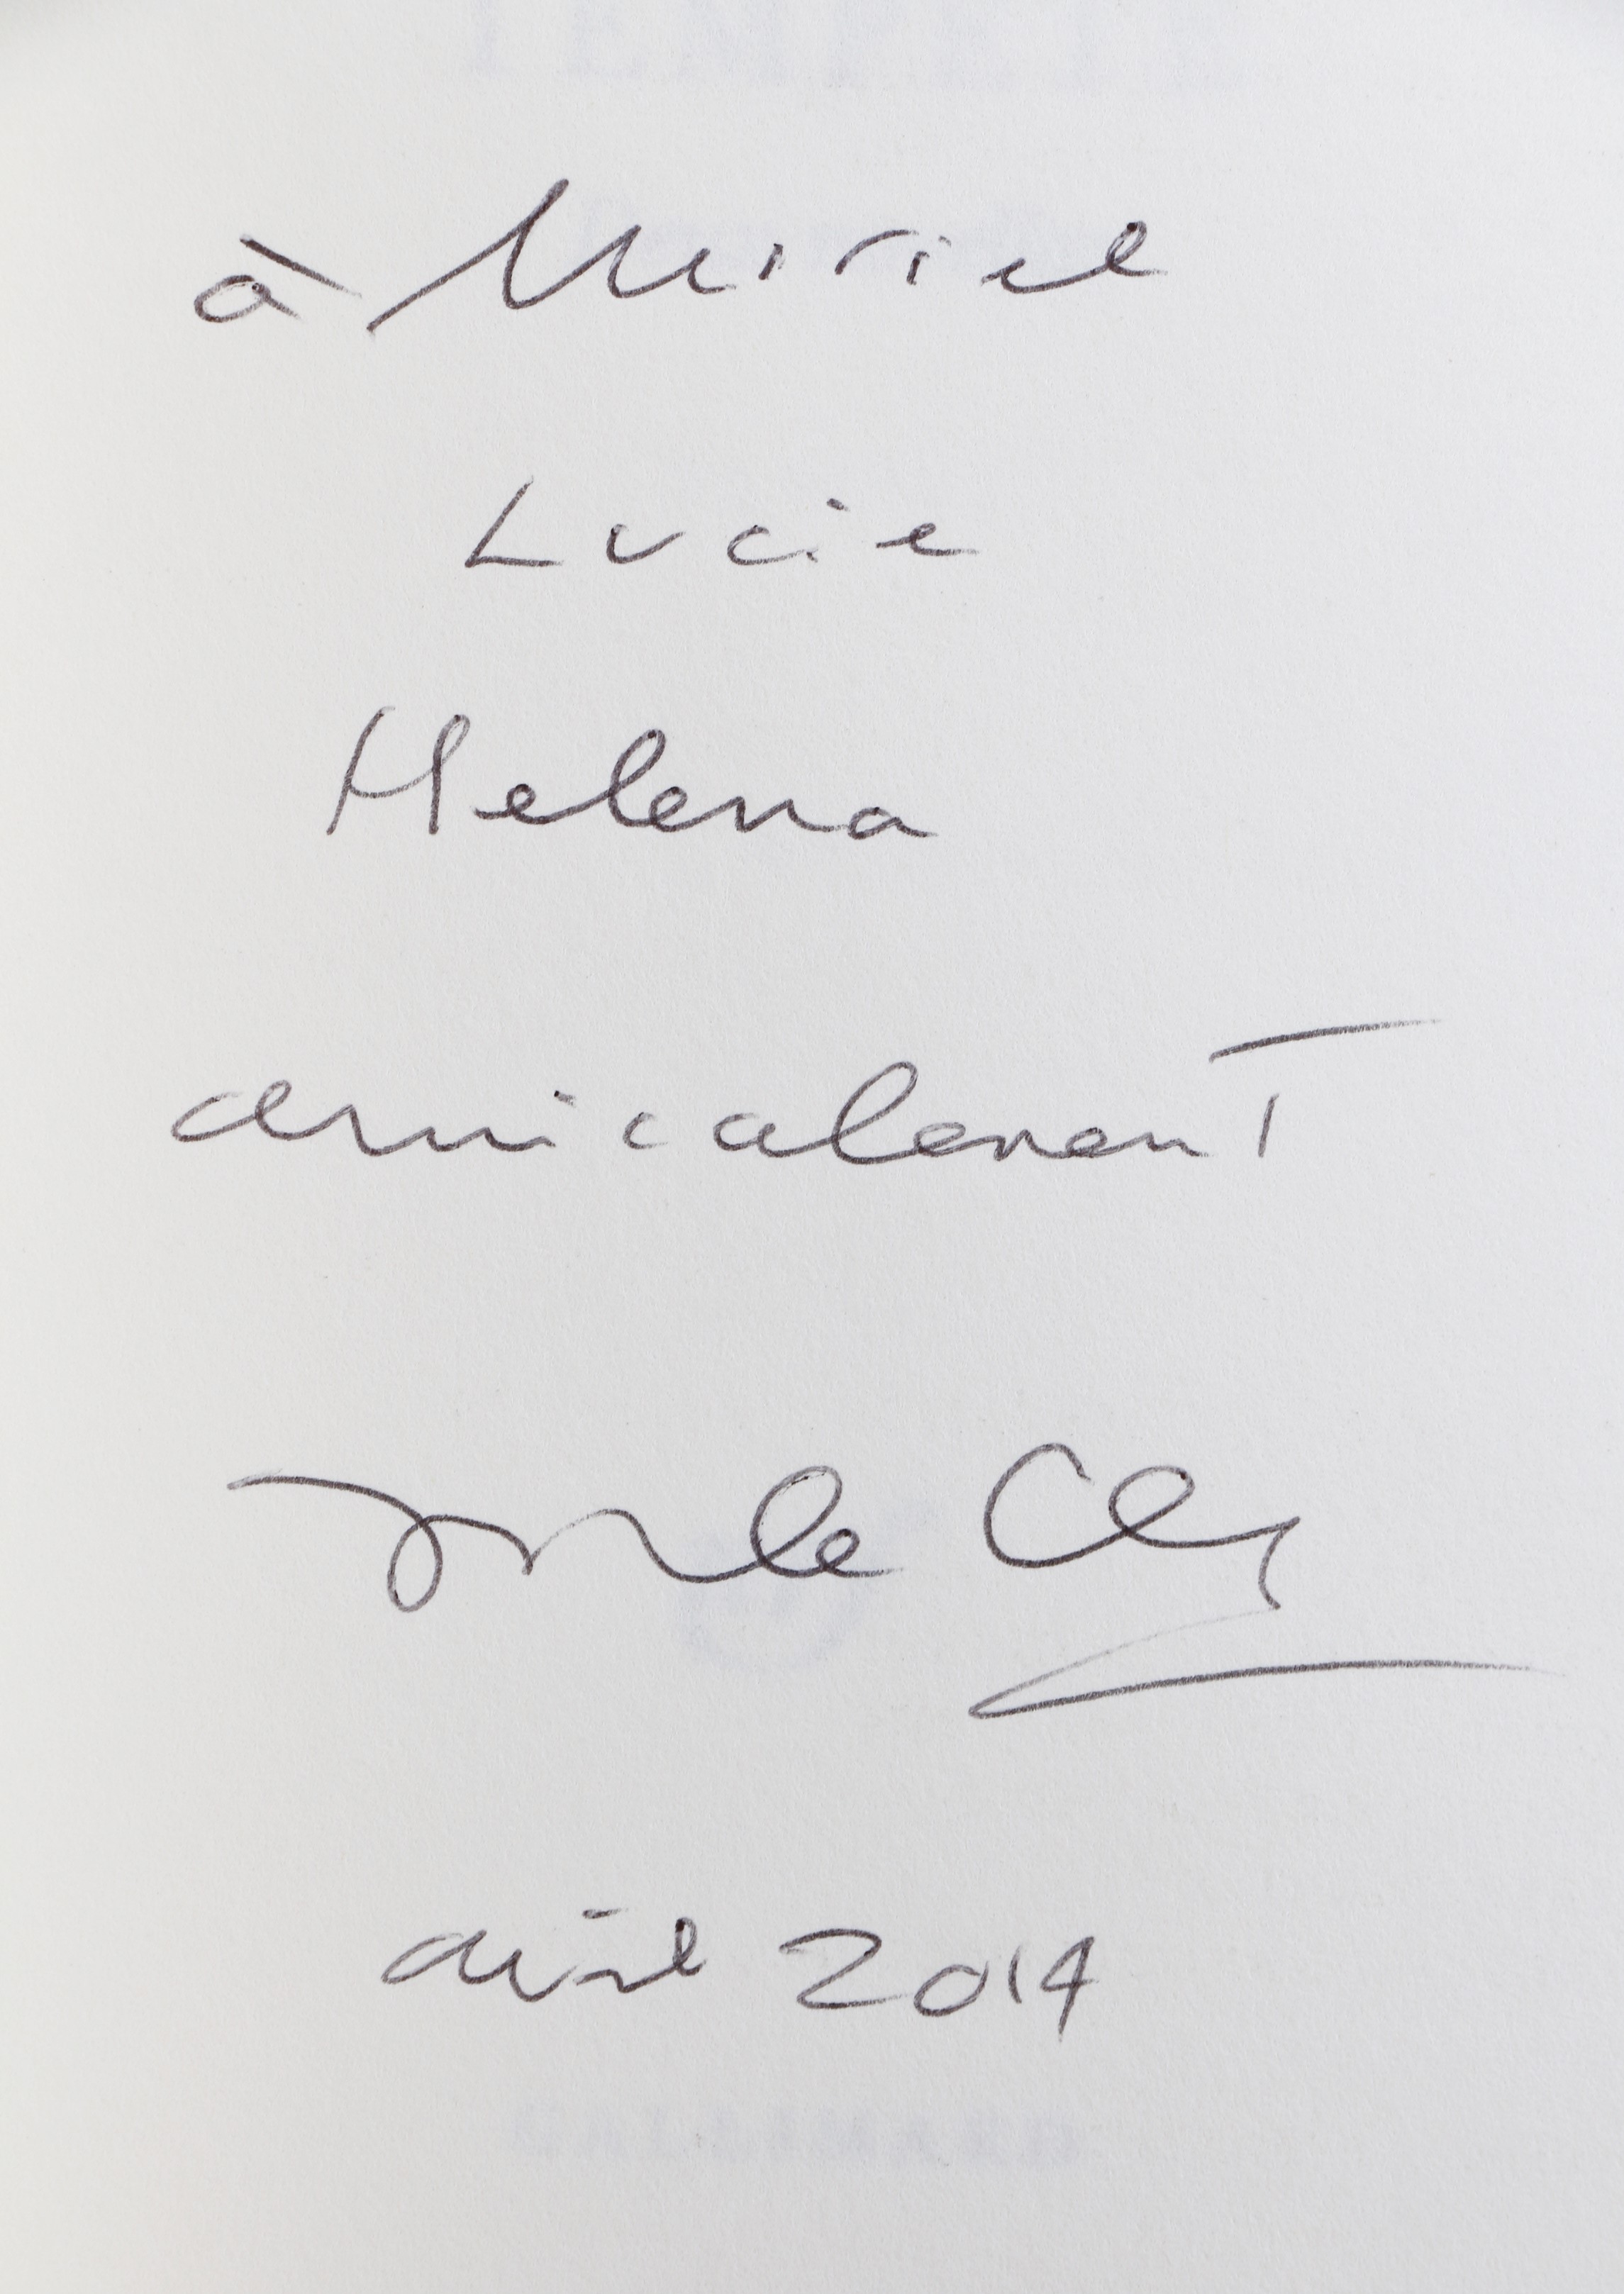 à Muriel
Lucie
Helena
amicalement
avril 2014